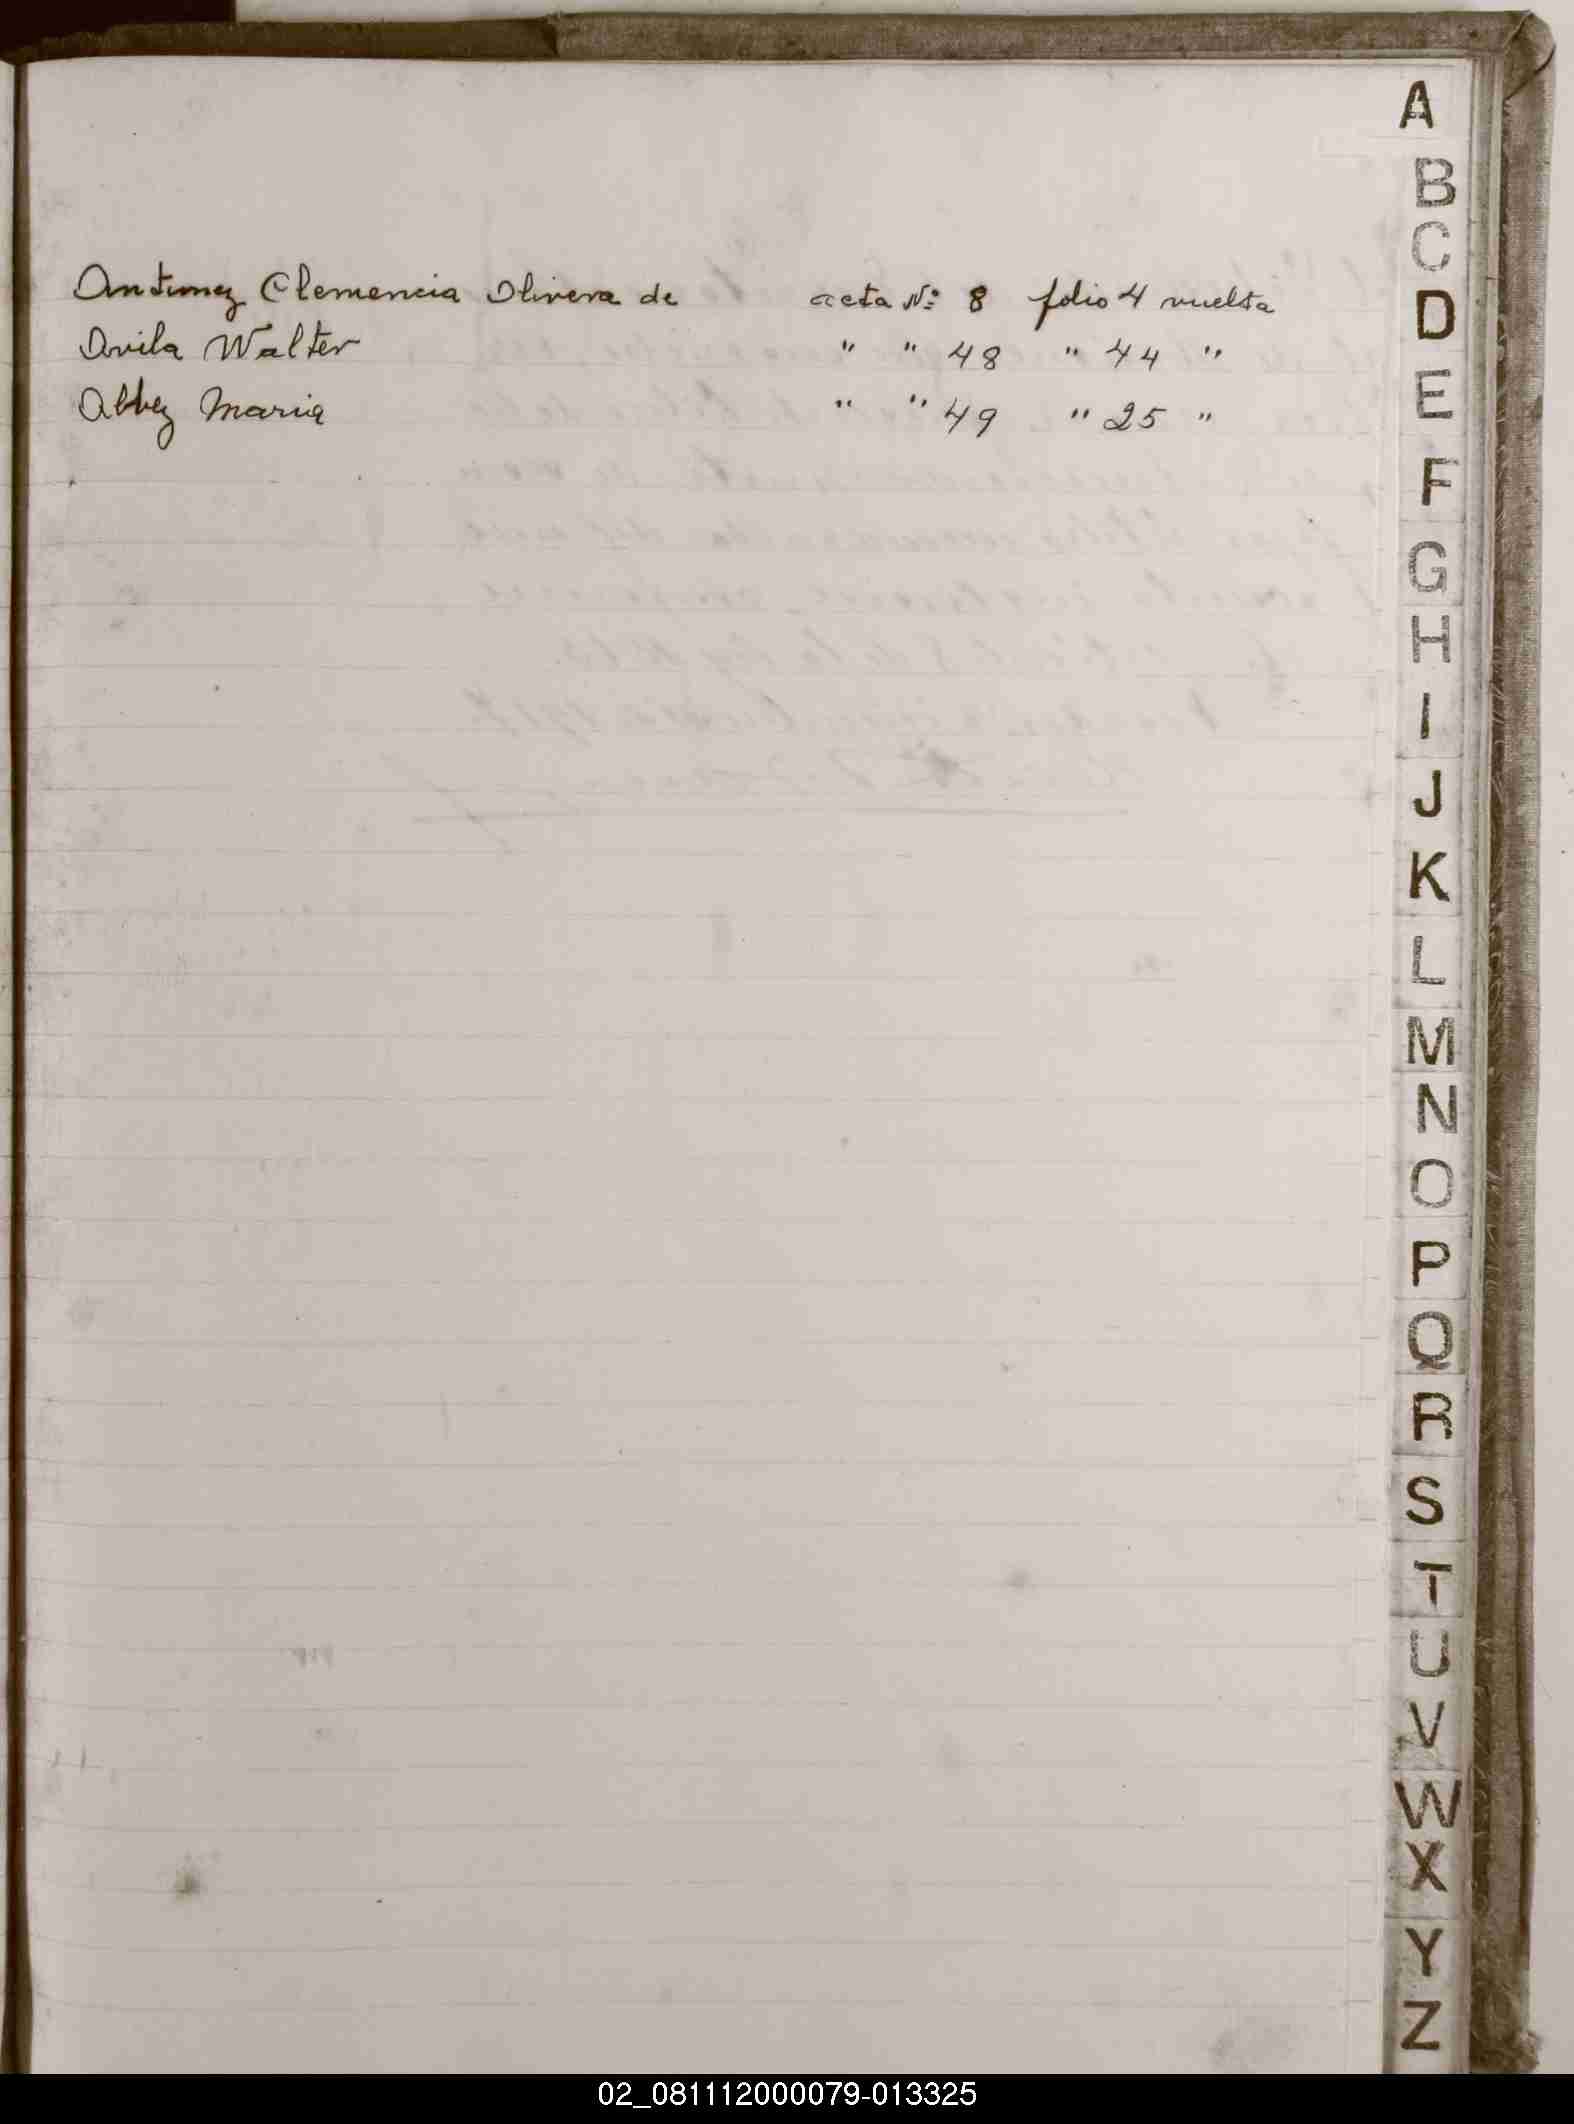 A
B
C
D
E
F
G
H
I
J
K
L
M
N
O
P
Q
R
S
T
U
V
W
X
Y
Z
Antunez Clemencia Olivera de acta Nº 8 folio 4 vuelta
Avila Walter " " 48 " 44 "
Maria " " 49 " 25 "
02_081112000079-013325